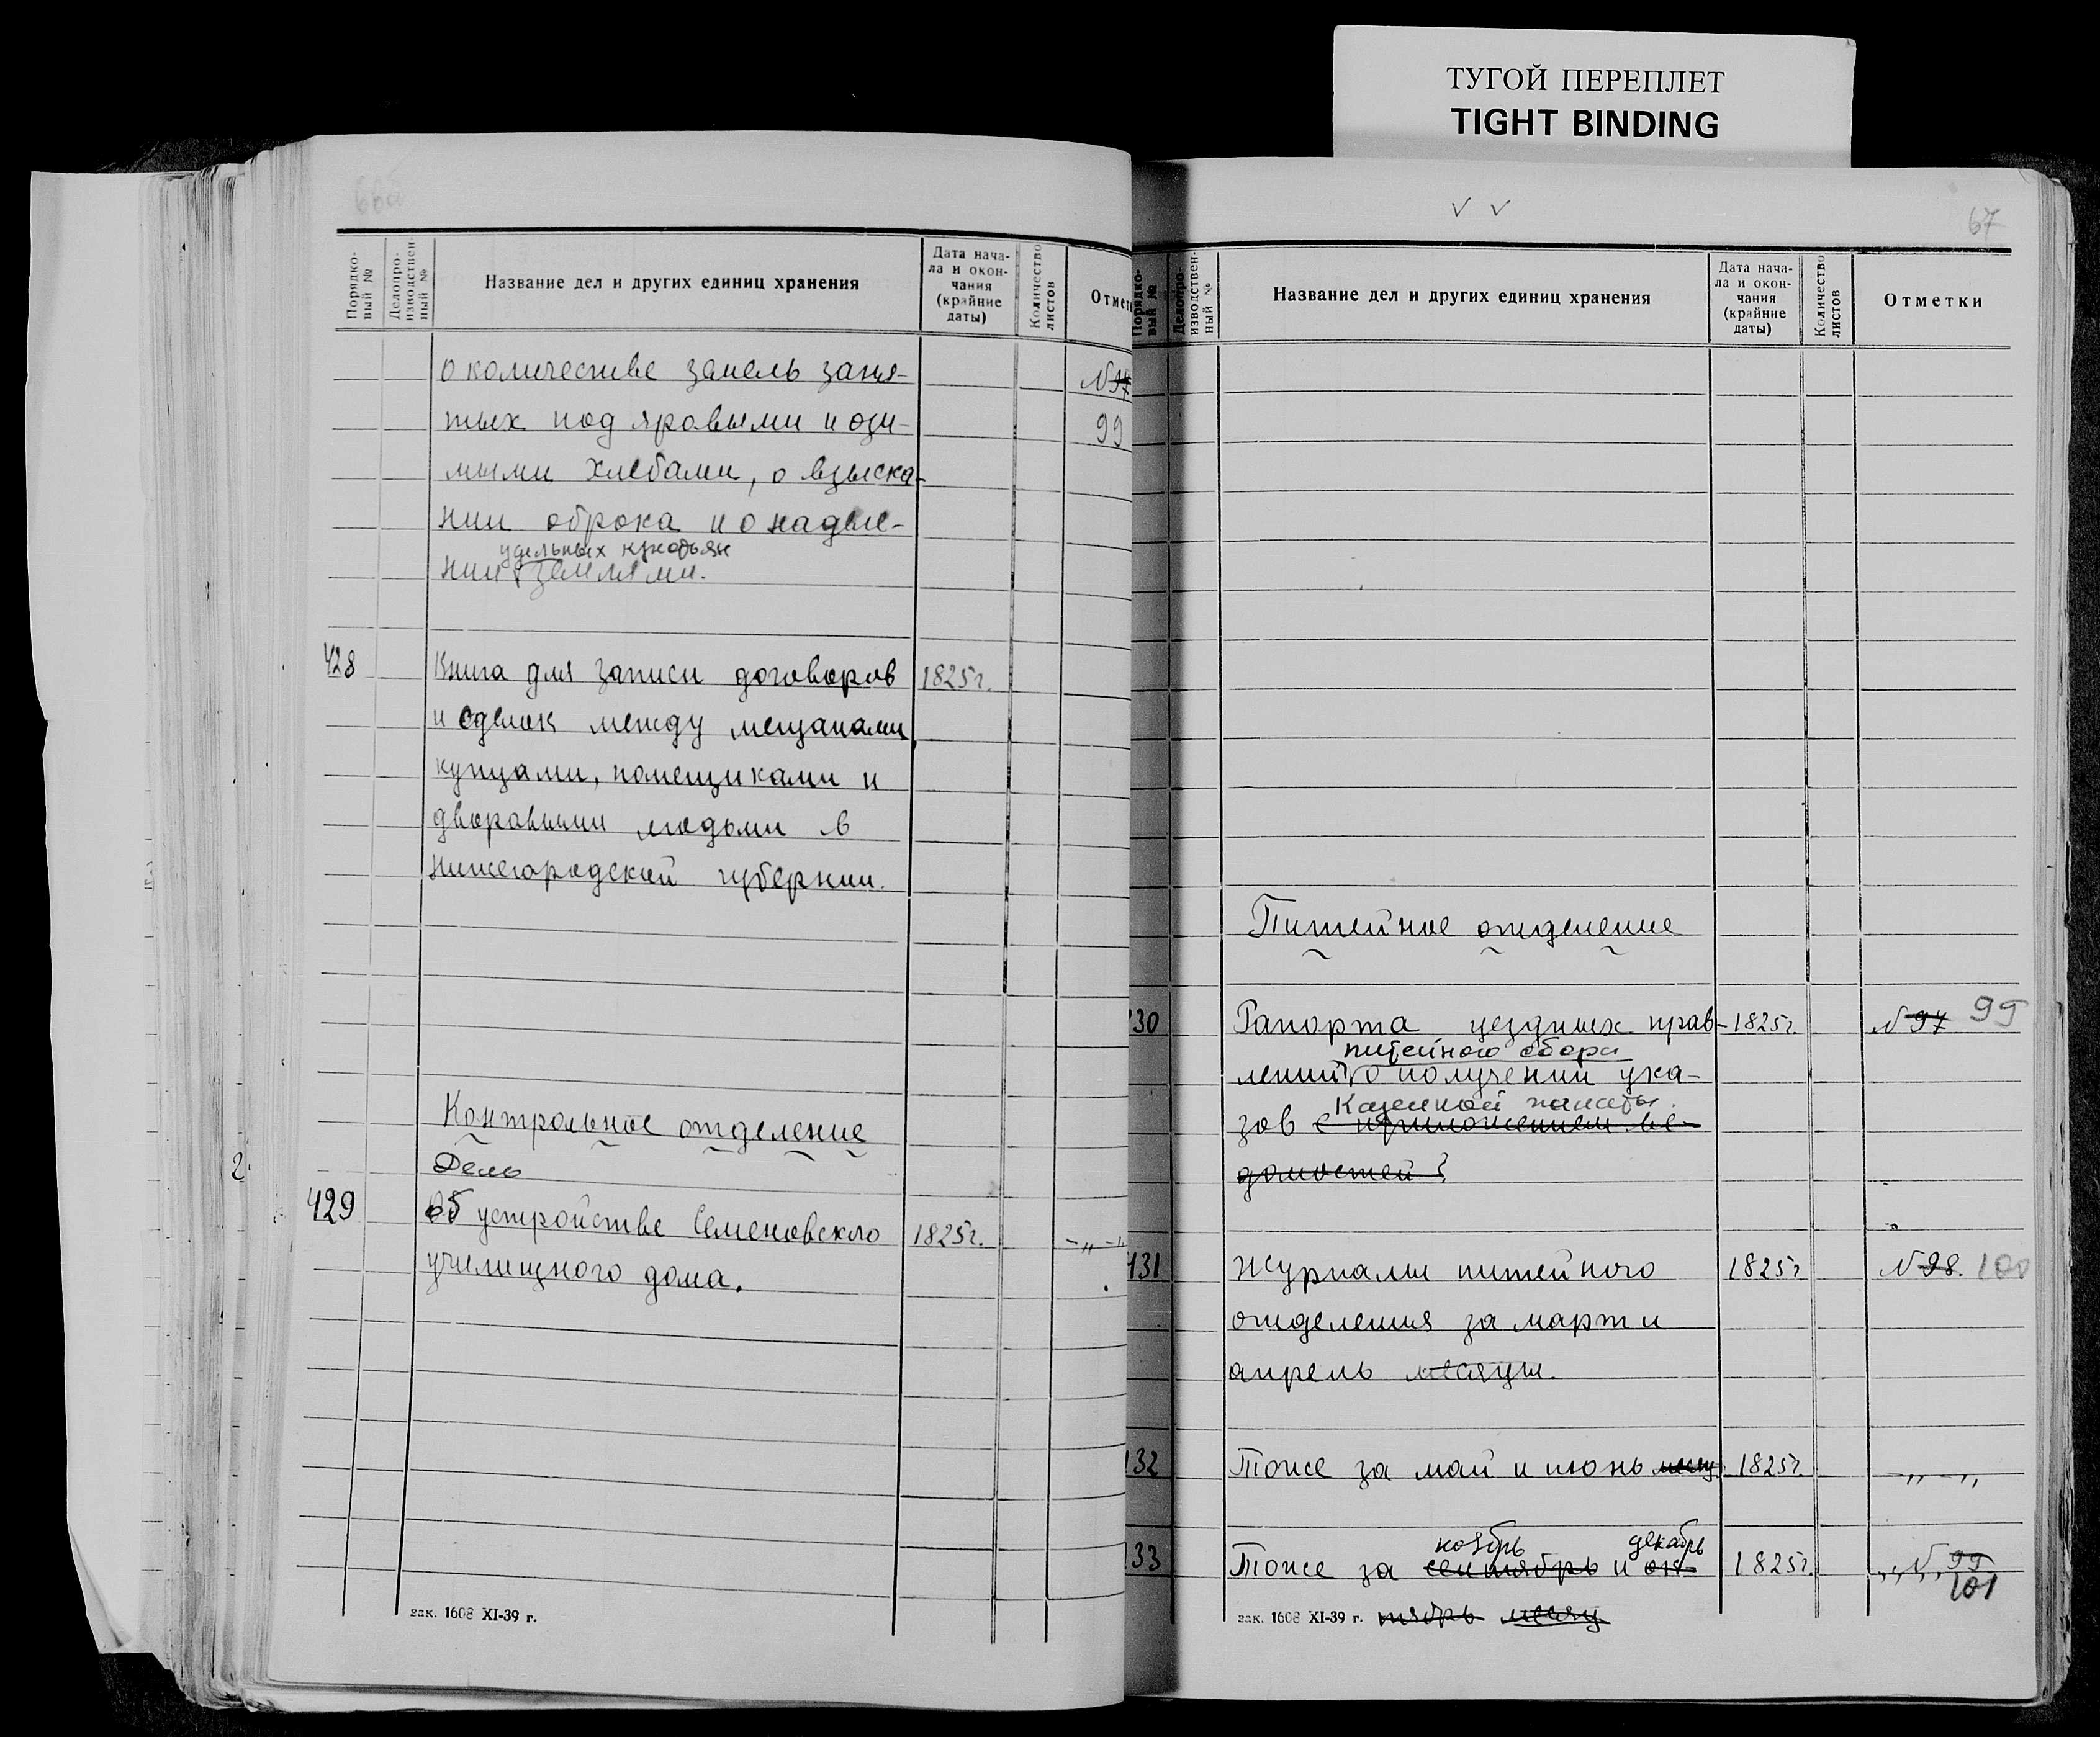 ТУГОЙ ПЕРЕПЛЕТ
TIGHT BINDING
66об
Порядко-
вый №
Делопро-
изводствен-
ный №
Название дел и других единиц хранения
Дата нача-
ла и окон-
чания
(крайние
даты)
Количество
листов
Отмет
о количестве земель заня-
№ 97
тых под яровыми и ози-
99
мыми хлебами, о взыска-
нии оброка и о наделе-
удельных крестьян
нии землями.
428
Книга для записи договоров
1825г.
и сделок между мещанами,
купцами, помещиками и
дворовыми людьми в
Нижегородской губернии.
Контрольное отделение
Дело
429
об устройстве Семеновского
1825г.
-„-„
училищного дома.
зак. 1608 XI-39 г.
67
Порядко-
вый №
Делопро-
изводствен-
ный №
Название дел и других единиц хранения
Дата нача-
ла и окон-
чания
(крайние
даты)
Количество
листов
Отметки
Питейное отделение
30
Рапорта уездных прав-
1825г.
№ 97 99
питейного сбора
лений о получении ука-
Казенной палаты.
зов с приложением ве-
домостей
431
Журналы питейного
1825г
№ 98. 100
отделения за март и
апрель месяцы.
32
Тоже за май и июнь месяц
1825г.
-„-„
ноябрь декабрь
33
Тоже за сентябрь и ок-
1825г.
„ № 99
101
зак. 1608 XI-39 г.
тябрь месяц